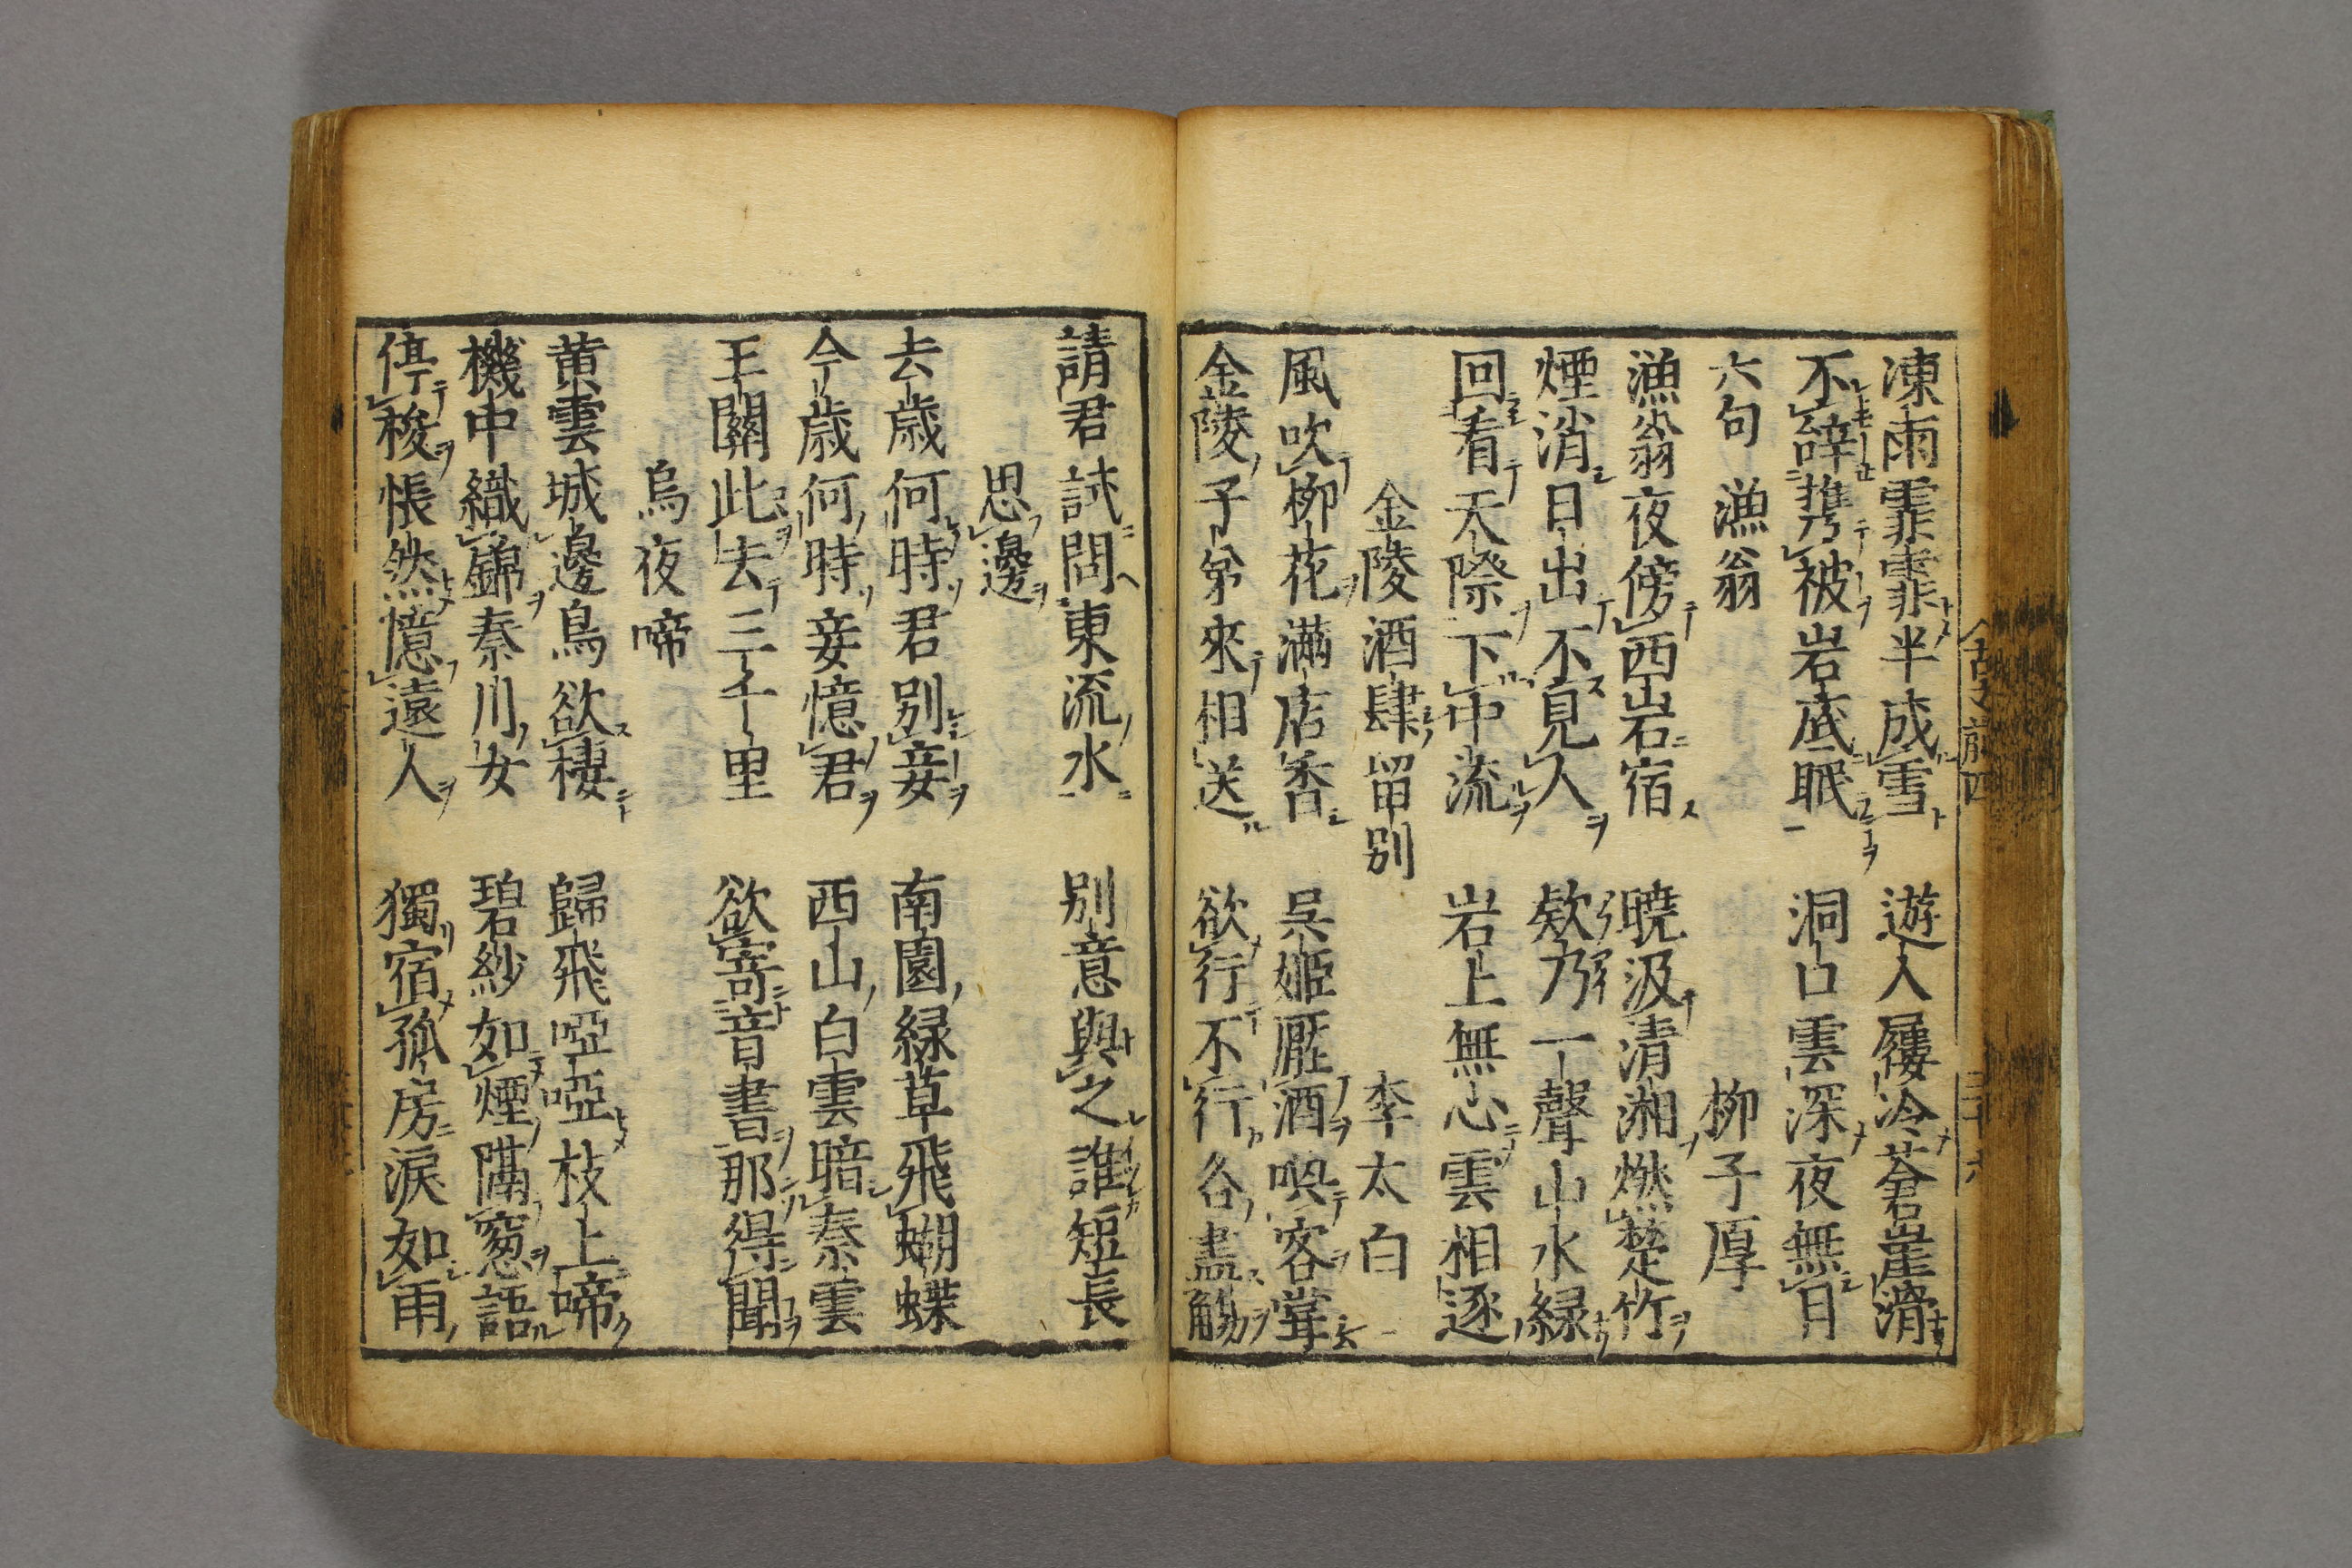 凍雨霏霏半成雪　遊人屨冷蒼崖滑
不辭携被岩底眠　洞口雲深夜無月
六句　漁翁　柳子厚
漁翁夜傍西岩宿　曉汲清湘燃楚竹
煙消日出不見人　欸乃一聲山水緑
回看天際下中流　岩上無心雲相逐
金陵酒肆留别　李太白
風吹柳花滿店香　呉姬壓酒喚客甞
金陵子弟來相送　欲行不行各盡觴
請君試問東流水　別意與之誰短長
思邊
去歳何時君别妾　南園緑草飛蝴蝶
今歳何時妾憶君　西山白雲暗秦雲
玉關此去三千里　欲寄音書那得聞
烏夜啼
黄雲城邊烏欲棲　歸飛啞啞枝上啼
機中織錦秦川女　碧紗如煙隔窓語
停梭悵然憶遠人　獨宿孤房涙如雨